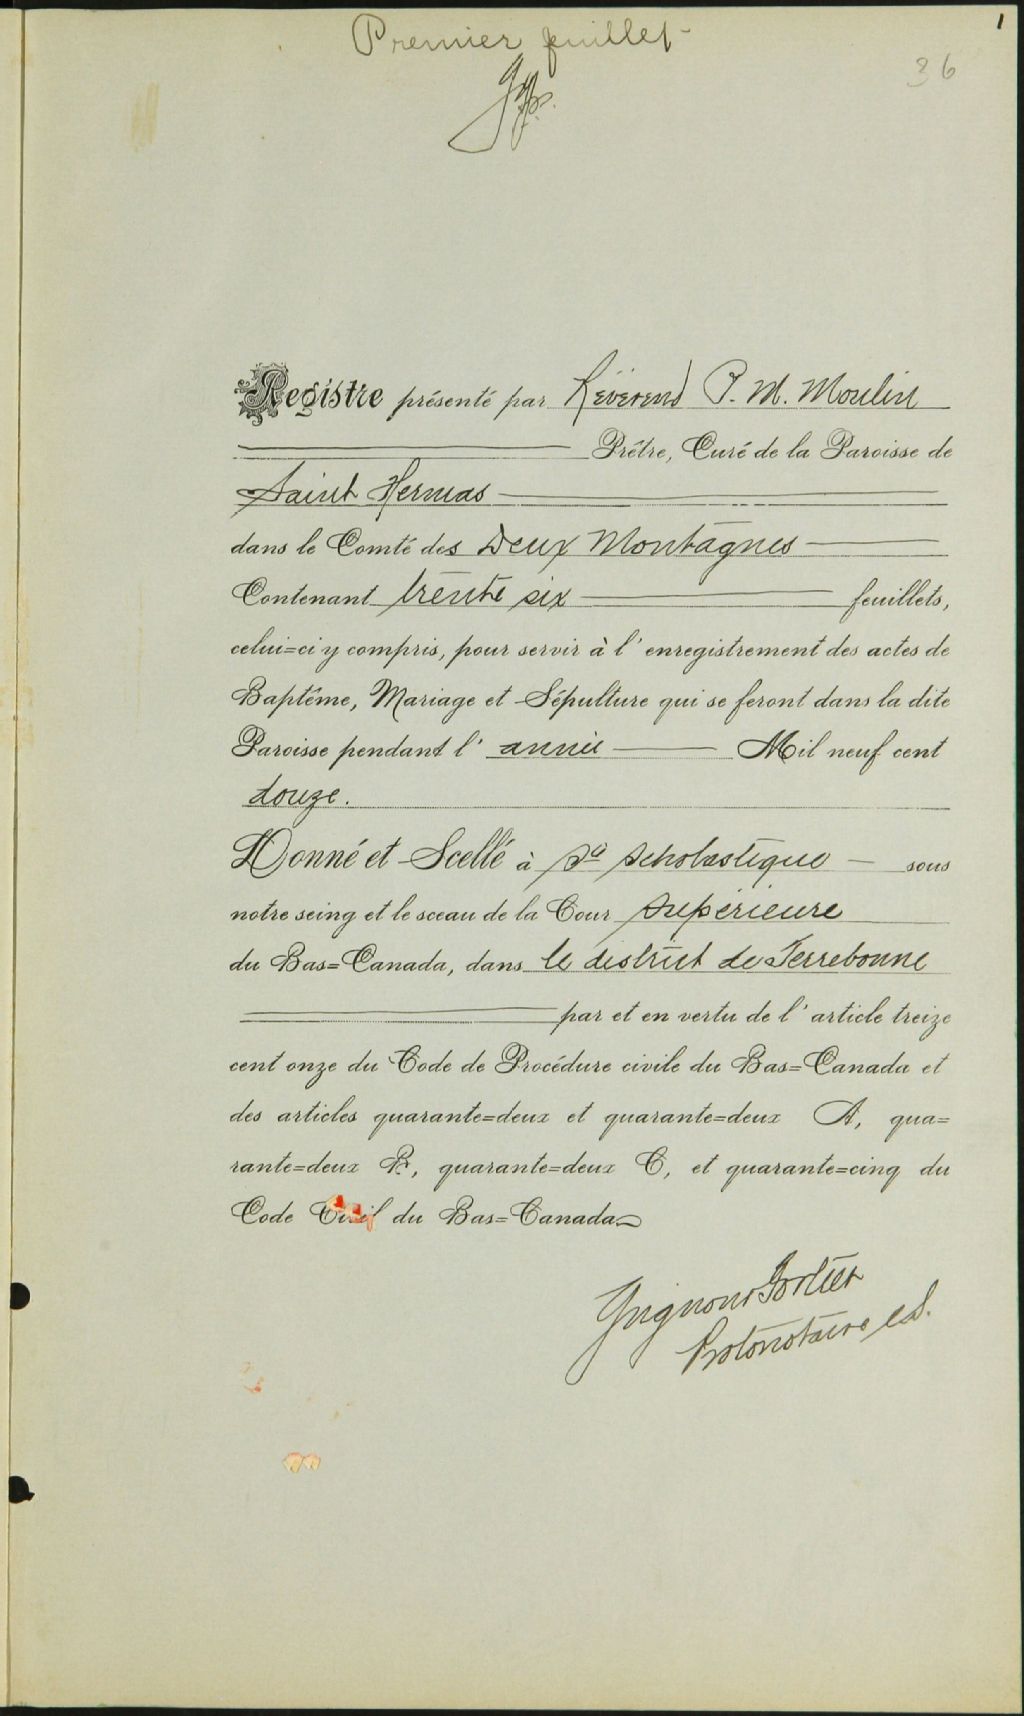 Premier feuillet
1
36
Registre présenté par Révérend P. M. Moulin
Prêtre, Curé de la Paroisse de
Saint Hermas
dans le Comté des Deux Montagnes
Contenant trente six feuillets,
celui=ci y compris, pour servir à l'enregistrement des actes de
Baptême, Mariage et Sépulture qui se feront dans la dite
Paroisse pendant l'année Mil neuf cent
douze.
Donné et Scellé à Ste Scholastique sous
notre seing et le sceau de la Cour Supérieure
du Bas=Canada, dans le district de Terrebonne
par et en vertu de l'article treize
cent onze du Code de Procédure civile du Bas=Canada et
des articles quarante=deux et quarante=deux A, qua=
rante=deux B, quarante=deux C, et quarante=cinq du
Code Civil du Bas=Canada
Grignon & Fortier
Protonotaire C.S.